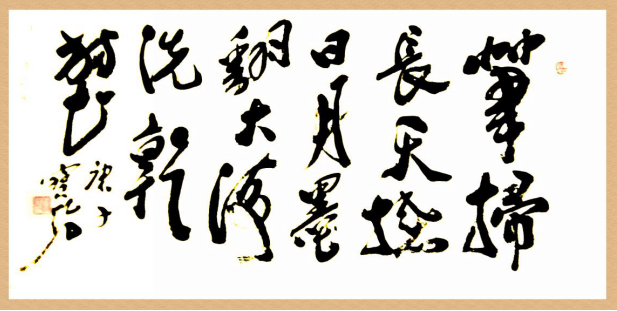 筆掃
長天
日月墨
翻大海
洗乾
庚子